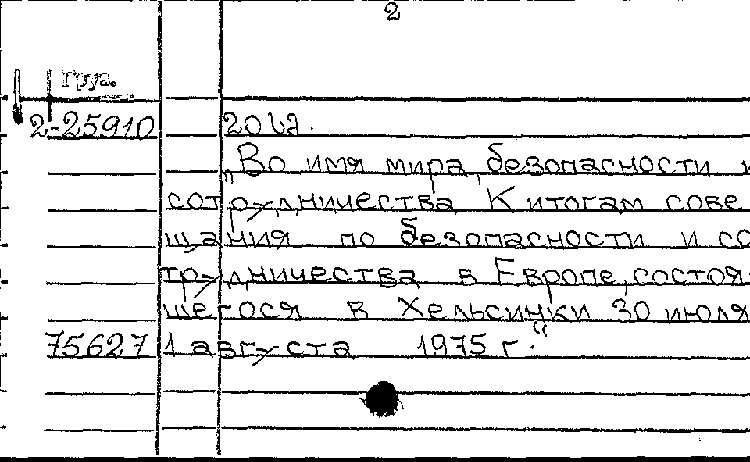 2
Груз.
2-25910 20 67.
„Во имя мира, безопасности и
сотрудничества К итогам сове
щания по безопасности и со
трудничества в Европе, состоя-
щегося в Хельсинки 30 июля
75627 1 августа 1975 г.“